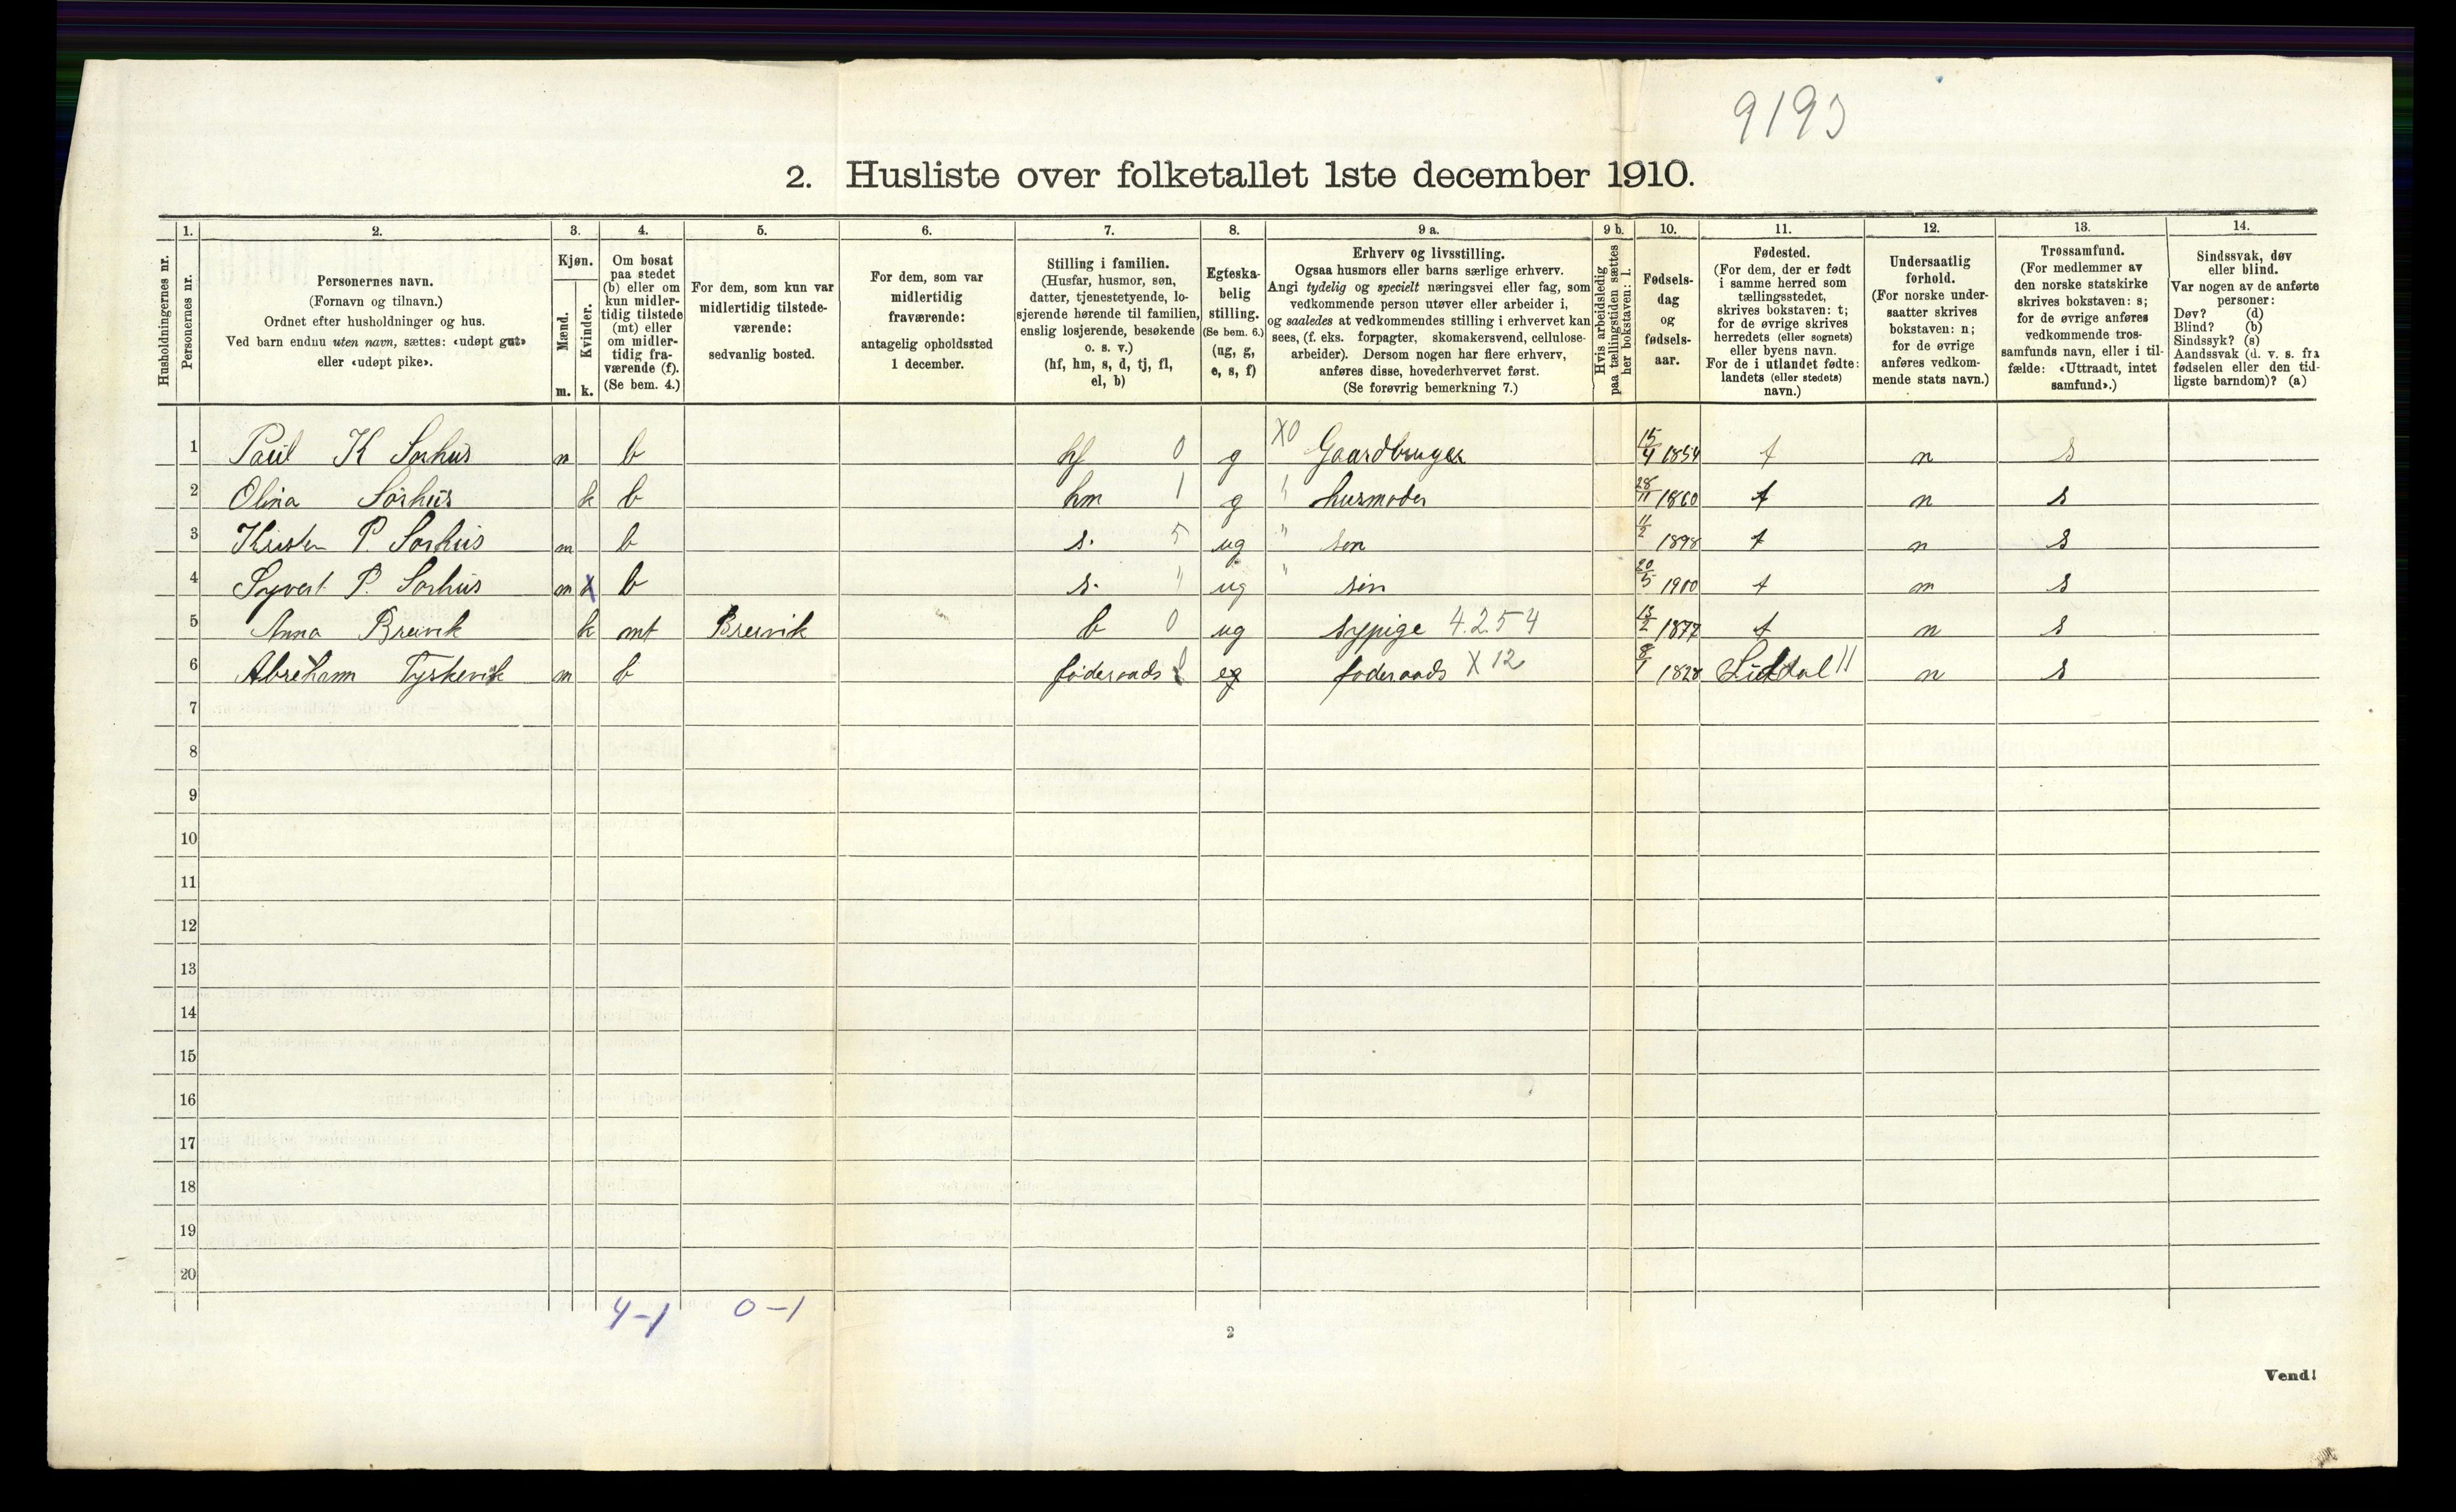 9193
2. Husliste over folketallet 1ste december 1910.
1. 2. 3. 4. 5. 6. 7. 8. 9 a. 9 b. 10. 11. 12. 13. 14.
Husholdningernes nr.
Personernes nr.
Personernes navn.
(Fornavn og tilnavn.)
Ordnet efter husholdninger og hus.
Ved barn endnu uten navn, sættes: «udøpt gut»
eller «udøpt pike».
Kjøn.
Mænd.
Kvinder.
m. k.
Om bosat
paa stedet
(b) eller om
kun midler-
tidig tilstede
(mt) eller
om midler-
tidig fra-
værende (f).
(Se bem. 4.)
For dem, som kun var
midlertidig tilstede-
værende:
sedvanlig bosted.
For dem, som var
midlertidig
fraværende:
antagelig opholdssted
1 december.
Stilling i familien.
(Husfar, husmor, søn,
datter, tjenestetyende, lo-
sjerende hørende til familien,
enslig losjerende, besøkende
o. s. v.)
(hf, hm, s, d, tj, fl,
el, b)
Egteska-
belig
stilling.
(Se bem. 6.)
(ug, g,
e, s, f)
Erhverv og livsstilling.
Ogsaa husmors eller barns særlige erhverv.
Angi tydelig og specielt næringsvei eller fag, som
vedkommende person utøver eller arbeider i,
og saaledes at vedkommendes stilling i erhvervet kan
sees, (f. eks. forpagter, skomakersvend, cellulose-
arbeider). Dersom nogen har flere erhverv,
anføres disse, hovederhvervet først.
(Se forøvrig bemerkning 7.)
Hvis arbeidsledig
paa tællingstiden sættes
her bokstaven: l.
Fødsels-
dag
og
fødsels-
aar.
Fødested.
(For dem, der er født
i samme herred som
tællingsstedet,
skrives bokstaven: t;
for de øvrige skrives
herredets (eller sognets)
eller byens navn.
For de i utlandet fødte:
landets (eller stedets)
navn.)
Undersaatlig
forhold.
(For norske under-
saatter skrives
bokstaven: n;
for de øvrige
anføres vedkom-
mende stats navn.)
Trossamfund.
(For medlemmer av
den norske statskirke
skrives bokstaven: s;
for de øvrige anføres
vedkommende tros-
samfunds navn, eller i til-
fælde: «Uttraadt, intet
samfund».)
Sindssvak, døv
eller blind.
Var nogen av de anførte
personer:
Døv? (d)
Blind? (b)
Sindssyk? (s)
Aandssvak (d. v. s. fra
fødselen eller den tid-
ligste barndom)? (a)
1 Paul K Sørhus m b hf 0 g X0 Gaardbruger 15/4 1854 t n s
2 Olina Sørhus k b hm 1 g " husmoder 28/11 1860 t n s
3 Kristen P. Sørhus m b s. 5 ug " søn 11/2 1898 t n s
4 Syvert P. Sørhus m k b s. " ug " søn 20/5 1900 t n s
5 Anna Breivik k mt Breivik b 0 ug sypige 4.254 13/2 1877 t n s
6 Abraham Tyskevik m b føderaads eg føderaads X 12 8/1 1828 n s
7
8
9
10
11
12
13
14
15
16
17
18
19
20
4-1 0-1
2
Vend!